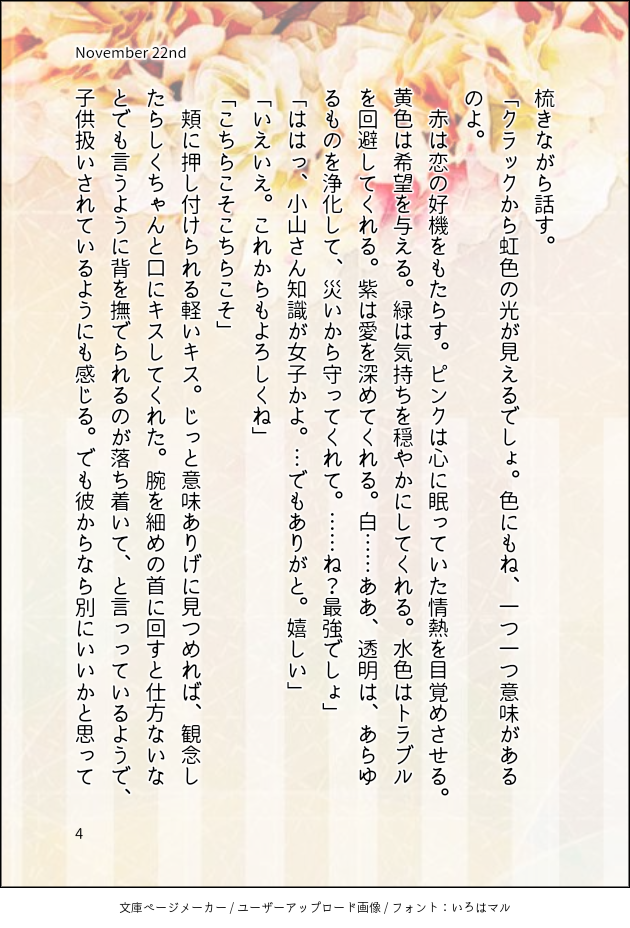 November 22nd
梳きながら話す。
「クラックから虹色の光が見えるでしょ。色にもね、一つ一つ意味がある
のよ。
　赤は恋の好機をもたらす。ピンクは心に眠っていた情熱を目覚めさせる。
黄色は希望を与える。緑は気持ちを穏やかにしてくれる。水色はトラブル
を回避してくれる。紫は愛を深めてくれる。白……ああ、透明は、あらゆ
るものを浄化して、災いから守ってくれて。……ね？最強でしょ」
「ははっ、小山さん知識が女子かよ。…でもありがと。嬉しい」
「いえいえ。これからもよろしくね」
「こちらこそこちらこそ」
　頬に押し付けられる軽いキス。じっと意味ありげに見つめれば、観念し
たらしくちゃんと口にキスしてくれた。腕を細めの首に回すと仕方ないな
とでも言うように背を撫でられるのが落ち着いて、と言っっているようで、
子供扱いされているようにも感じる。でも彼からなら別にいいかと思って
4
文庫ページメーカー / ユーザーアップロード画像 / フォント：いろはマル